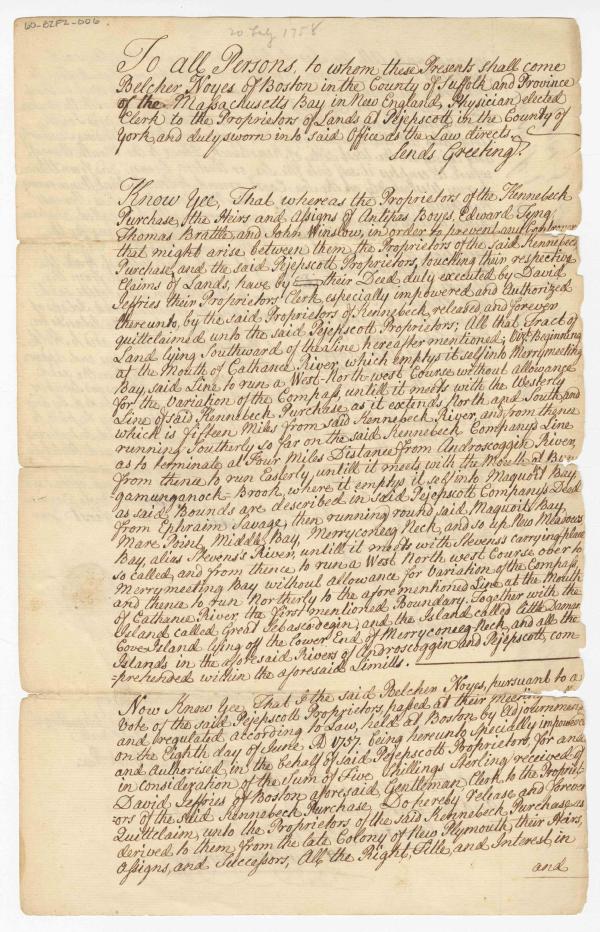 60-BZF2-006
20 July 1758
To all Persons, to whom these Presents shall come
Belcher Noyes of Boston in the County of Suffolk and Province
of the Massachusetts Bay in New England, Physician, elected
Clerk to the Proprietors of Lands at Pejepscott, in the County of
York, and duly sworn into said Office as the Law directs,
Sends Greeting.
Know Yee, That whereas the Proprietors of the Kennebeck
Purchase, the Heirs and Assigns of Antipas Boyes, Edward Tyng
Thomas Brattle and John Winslow, in order to prevent any Controver
that might arise between them the Proprietors of the said Kennebec
Purchase, and the said Pejepscott Proprietors, touching their respective
Claims of Lands, have by their Deed duly executed by David
Jeffries their Proprietors Clerk, especially impowered and Authorized
thereunto, by the said Proprietors of Kennebeck, released and forever
quittclaimed unto the said Pejepscott Proprietors; All that Tract of
Land lying Southward of the Line hereafter mentioned; Vizt. Beginning
at the Mouth of Cathance River, which emptys it self into Merrymeeting
Bay, said Line to run a West-North-west Course without allowance
for the Variation of the Compass, untill it meets with the Westerly
Line of said Kennebeck Purchase as it extends North and South and
which is fifteen Miles from said Kennebeck River, and from thence
running Southerly so far on the said Kennebeck Companys Line
as to terminate at Four Miles Distance from Androscoggin River,
from thence to run Easterly, untill it meets with the Mouth of Bun
gamungannock-Brook, where it emptys it self into Maquoit Bay,
as said Bounds are described in said Pejepscott Companys Deed
from Ephraim Savage, then running round said Maquoit Bay
Mare Point, Middle Bay, Merryconeeg Neck, and so up New Meadows
Bay, alias Stevens's River, untill it meets with Stevens's carrying place
so called, and from thence to run a West North west Course over to
Merrymeeting Bay without allowance for Variation of the Compass,
and thence to run Northerly to the aforementioned Line at the Mouth
of Cathance River the first mentioned Boundary. Together with the
Island called Great Sebascodegin, and the Island called little Damers
Cove Island lying off the Lower End of Merryconeeg Neck, and all the
Islands in the aforesaid Rivers of Androscoggin and Pejepscott, com
-prehended within the aforesaid Limitts.
Now Know Yee, That I the said Belcher Noyes, pursuant to a
Vote of the said Pejepscott Proprietors passed at their Meeting
and regulated according to Law, held at Boston by Adjournment
on the Eighth day of June A 1757. being hereunto specially impowered
and Authorised, in the behalf of said Pejepscott Proprietors, for and
in consideration of the Sum of Five Shillings Sterling received of
David Jeffries of Boston aforesaid Gentleman Clerk to the Propriet
ors of the said Kennebeck Purchase. Do hereby release and forever
Quittclaim unto the Proprietors of the said Kennebeck Purchase as
derived to them, from the late Colony of New Plymouth, their Heirs,
Assigns, and Successors, All the Right, Title, and Interest, in
and